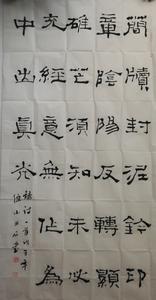 簡牘封泥鈐印
章陰陽反轉顯
雄芒須知未必
充經意無作為
中出真光